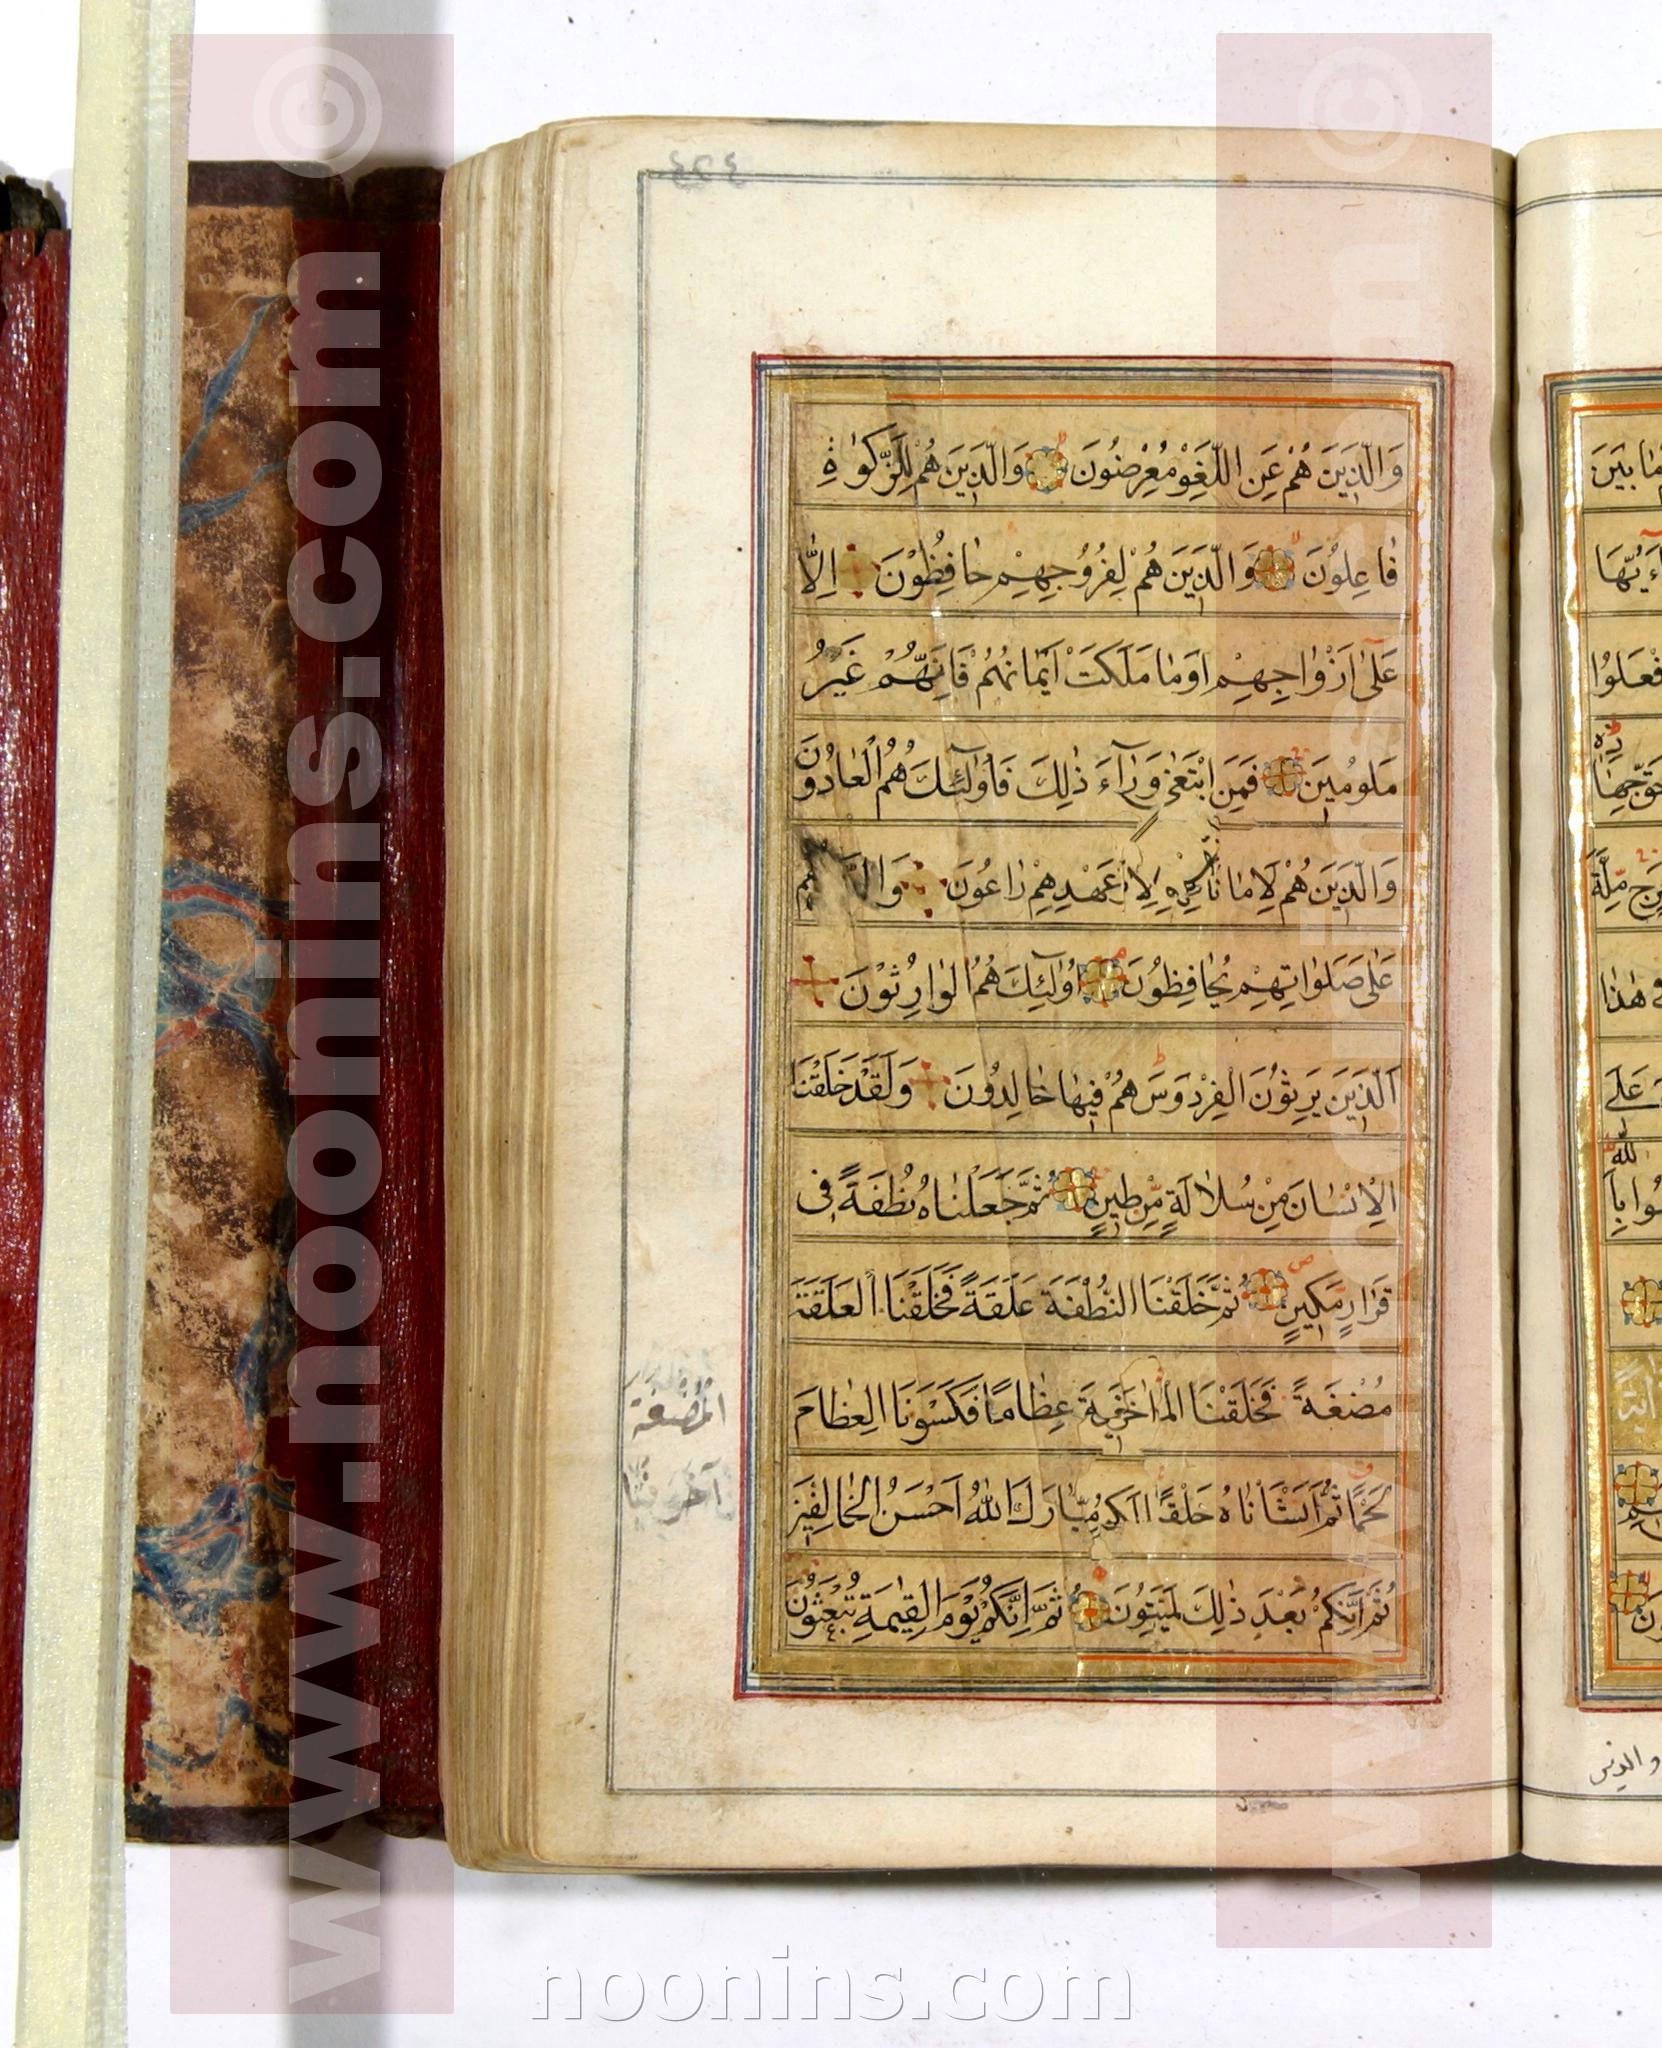 وَالَّذِينَ هُمْ عَنِ اللَّغْوِ مُعْرِضُونَ وَالَّذِينَ هُمْ لِلزَّكَوٰةِ
فَاعِلُونَ وَالَّذِينَ هُمْ لِفُرُوجِهِمْ حَافِظُونَ اِلَّا
عَلَىٰ اَزْوَاجِهِمْ اَوْ مَا مَلَكَتْ اَيْمَانُهُمْ فَاِنَّهُمْ غَيْرُ
مَلُومِينَ فَمَنِ ابْتَغَىٰ وَرَآءَ ذٰلِكَ فَاُولٰٓئِكَ هُمُ الْعَادُونَ
وَالَّذِينَ هُمْ لِاَمَانَا عَهْدِهِمْ رَاعُونَ هُمْ
عَلَىٰ صَلَوَاتِهِمْ يُحَافِظُونَ اُولٰٓئِكَ هُمُ الْوَارِثُونَ
اَلَّذِينَ يَرِثُونَ الْفِرْدَوْسَ هُمْ فِيهَا خَالِدُونَ وَلَقَدْ خَلَقْنَا
الْاِنْسَانَ مِنْ سُلَالَةٍ مِّنْ طِينٍ ثُمَّ جَعَلْنَاهُ نُطْفَةً فِى
قَرَارٍ مَّكِينٍ ثُمَّ خَلَقْنَا النُّطْفَةَ عَلَقَةً فَخَلَقْنَا الْعَلَقَةَ
مُضْغَةً فَخَلَقْنَا عِظَامًا فَكَسَوْنَا الْعِظَامَ
لَحْمًا ثُمَّ اَنْشَأْنَاهُ خَلْقًا اللّٰهُ اَحْسَنُ الْخَالِقِينَ
ثُمَّ اِنَّكُمْ بَعْدَ ذٰلِكَ لَمَيِّتُونَ ثُمَّ اِنَّكُمْ يَوْمَ الْقِيٰمَةِ تُبْعَثُونَ
الْمُضْغَةَ
مَا بَيْنَ
فْعَلُوا
مِلَّةَ
فِى هٰذَا
عَلَى
والذين
www.noonins.com ©
www.noonins.com ©
noonins.com